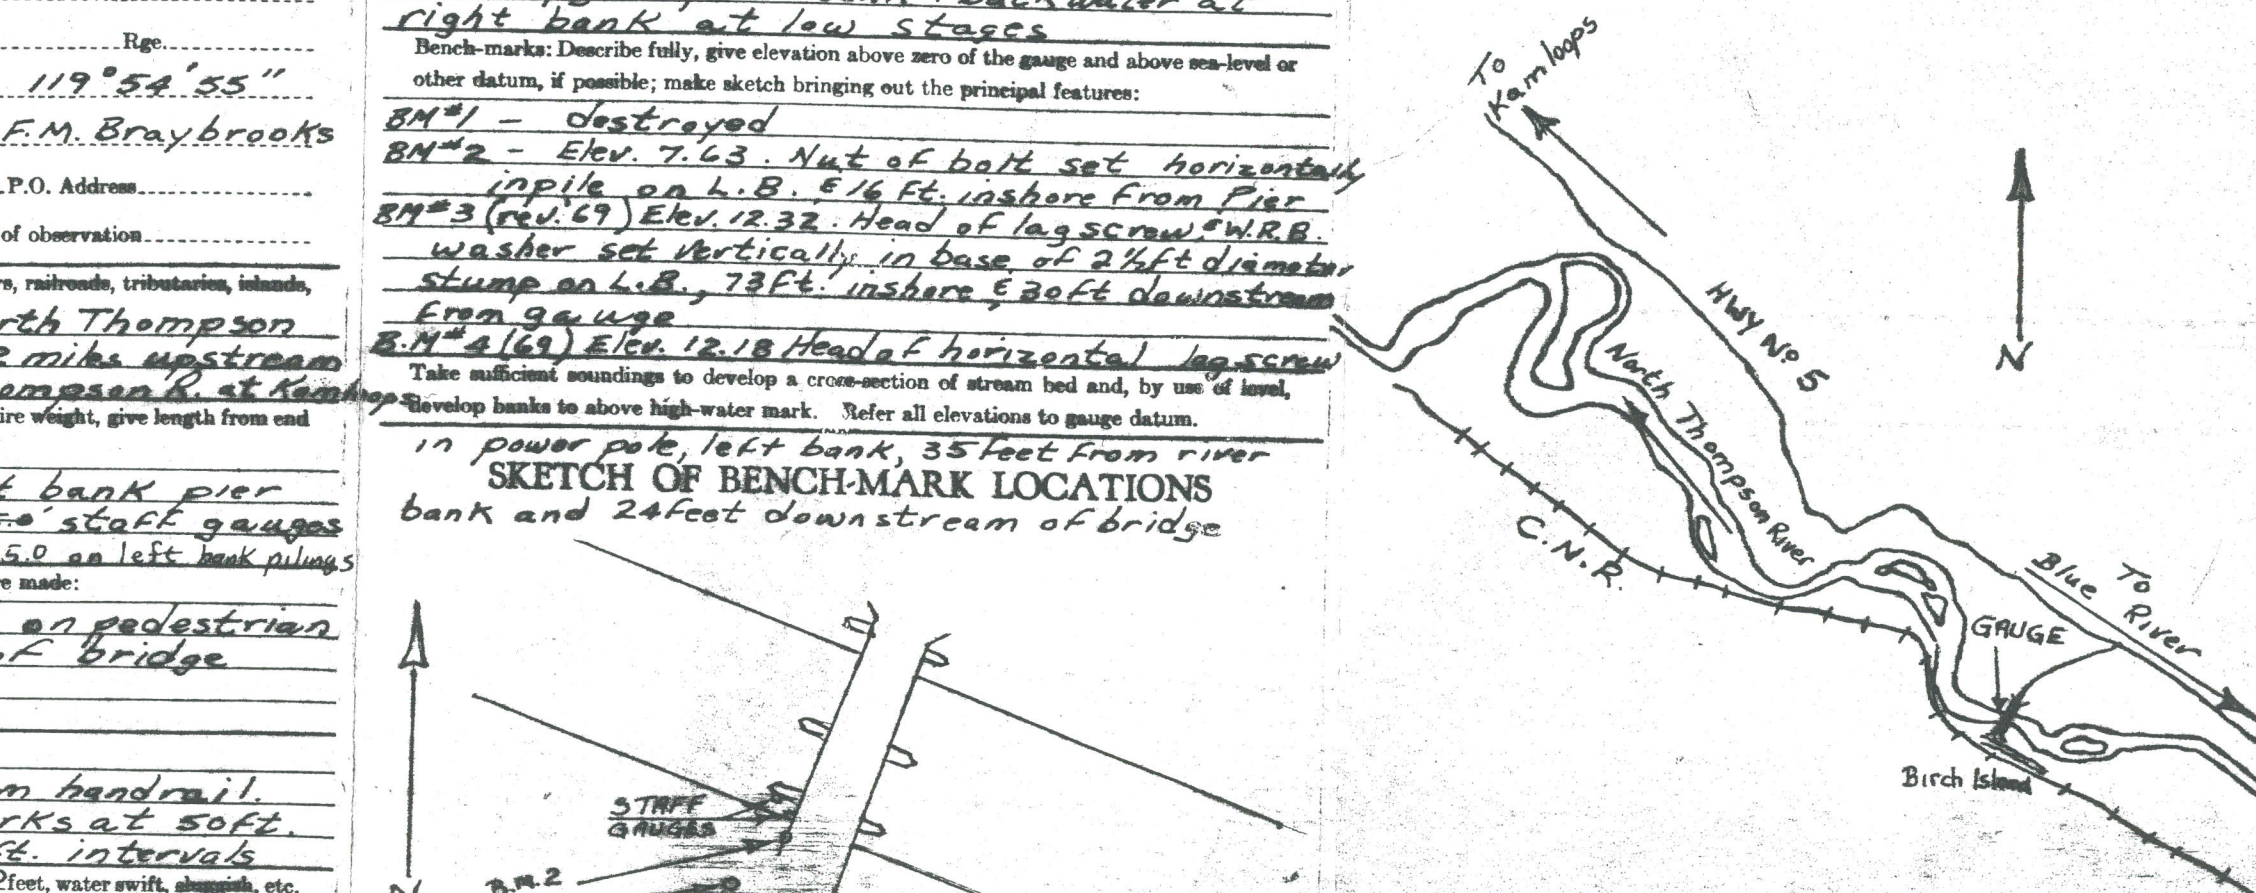 Rge.
119°54'55"
F.M. Braybrooks
P.O. Address
of observation
s, railroads, tributaries, islands,
rth Thompson
2 miles upstream
ompson R. at Kamloops
ire weight, give length from end
t bank pier
staff gauges
5.0 on left bank pilings
e made:
on pedestrian
of bridge
m handrail.
rks at 50ft.
ft. intervals
feet, water swift, sluggish, etc.
right bank at low stages
Bench-marks: Describe fully, give elevation above zero of the gauge and above sea-level or
other datum, if possible; make sketch bringing out the principal features:
BM#1 - destroyed
BM#2 - Elev. 7.63. Nut of bolt set horizontally
inpile on L.B. & 16 ft. inshore from Pier
BM#3 (rev. 69) Elev. 12.32. Head of lag screw & W.R.B.
washer set vertically in base of 2½ft diameter
stump on L.B., 73ft. inshore & 30ft downstream
from gauge
B.M#4 (69) Elev. 12.18 Head of horizontal lag screw
Take sufficient soundings to develop a cross-section of stream bed and, by use of level,
develop banks to above high-water mark. Refer all elevations to gauge datum.
in power pole, left bank, 35 feet from river
SKETCH OF BENCH-MARK LOCATIONS
bank and 24feet downstream of bridge
STAFF
GAUGES
B.M.2
N
To
Kamloops
HWY No 5
N
North Thompson River
C.N.R.
To
Blue River
GAUGE
Birch Island